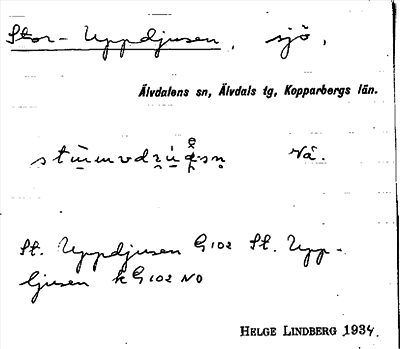 Stor-Uppdjusen, sjö,
Älvdalens sn, Älvdals tg, Kopparbergs län.
Vå.
St. Uppdjusen G 102 St. Upp-
ljusen k G 102 NO
HELGE LINDBERG 1934.